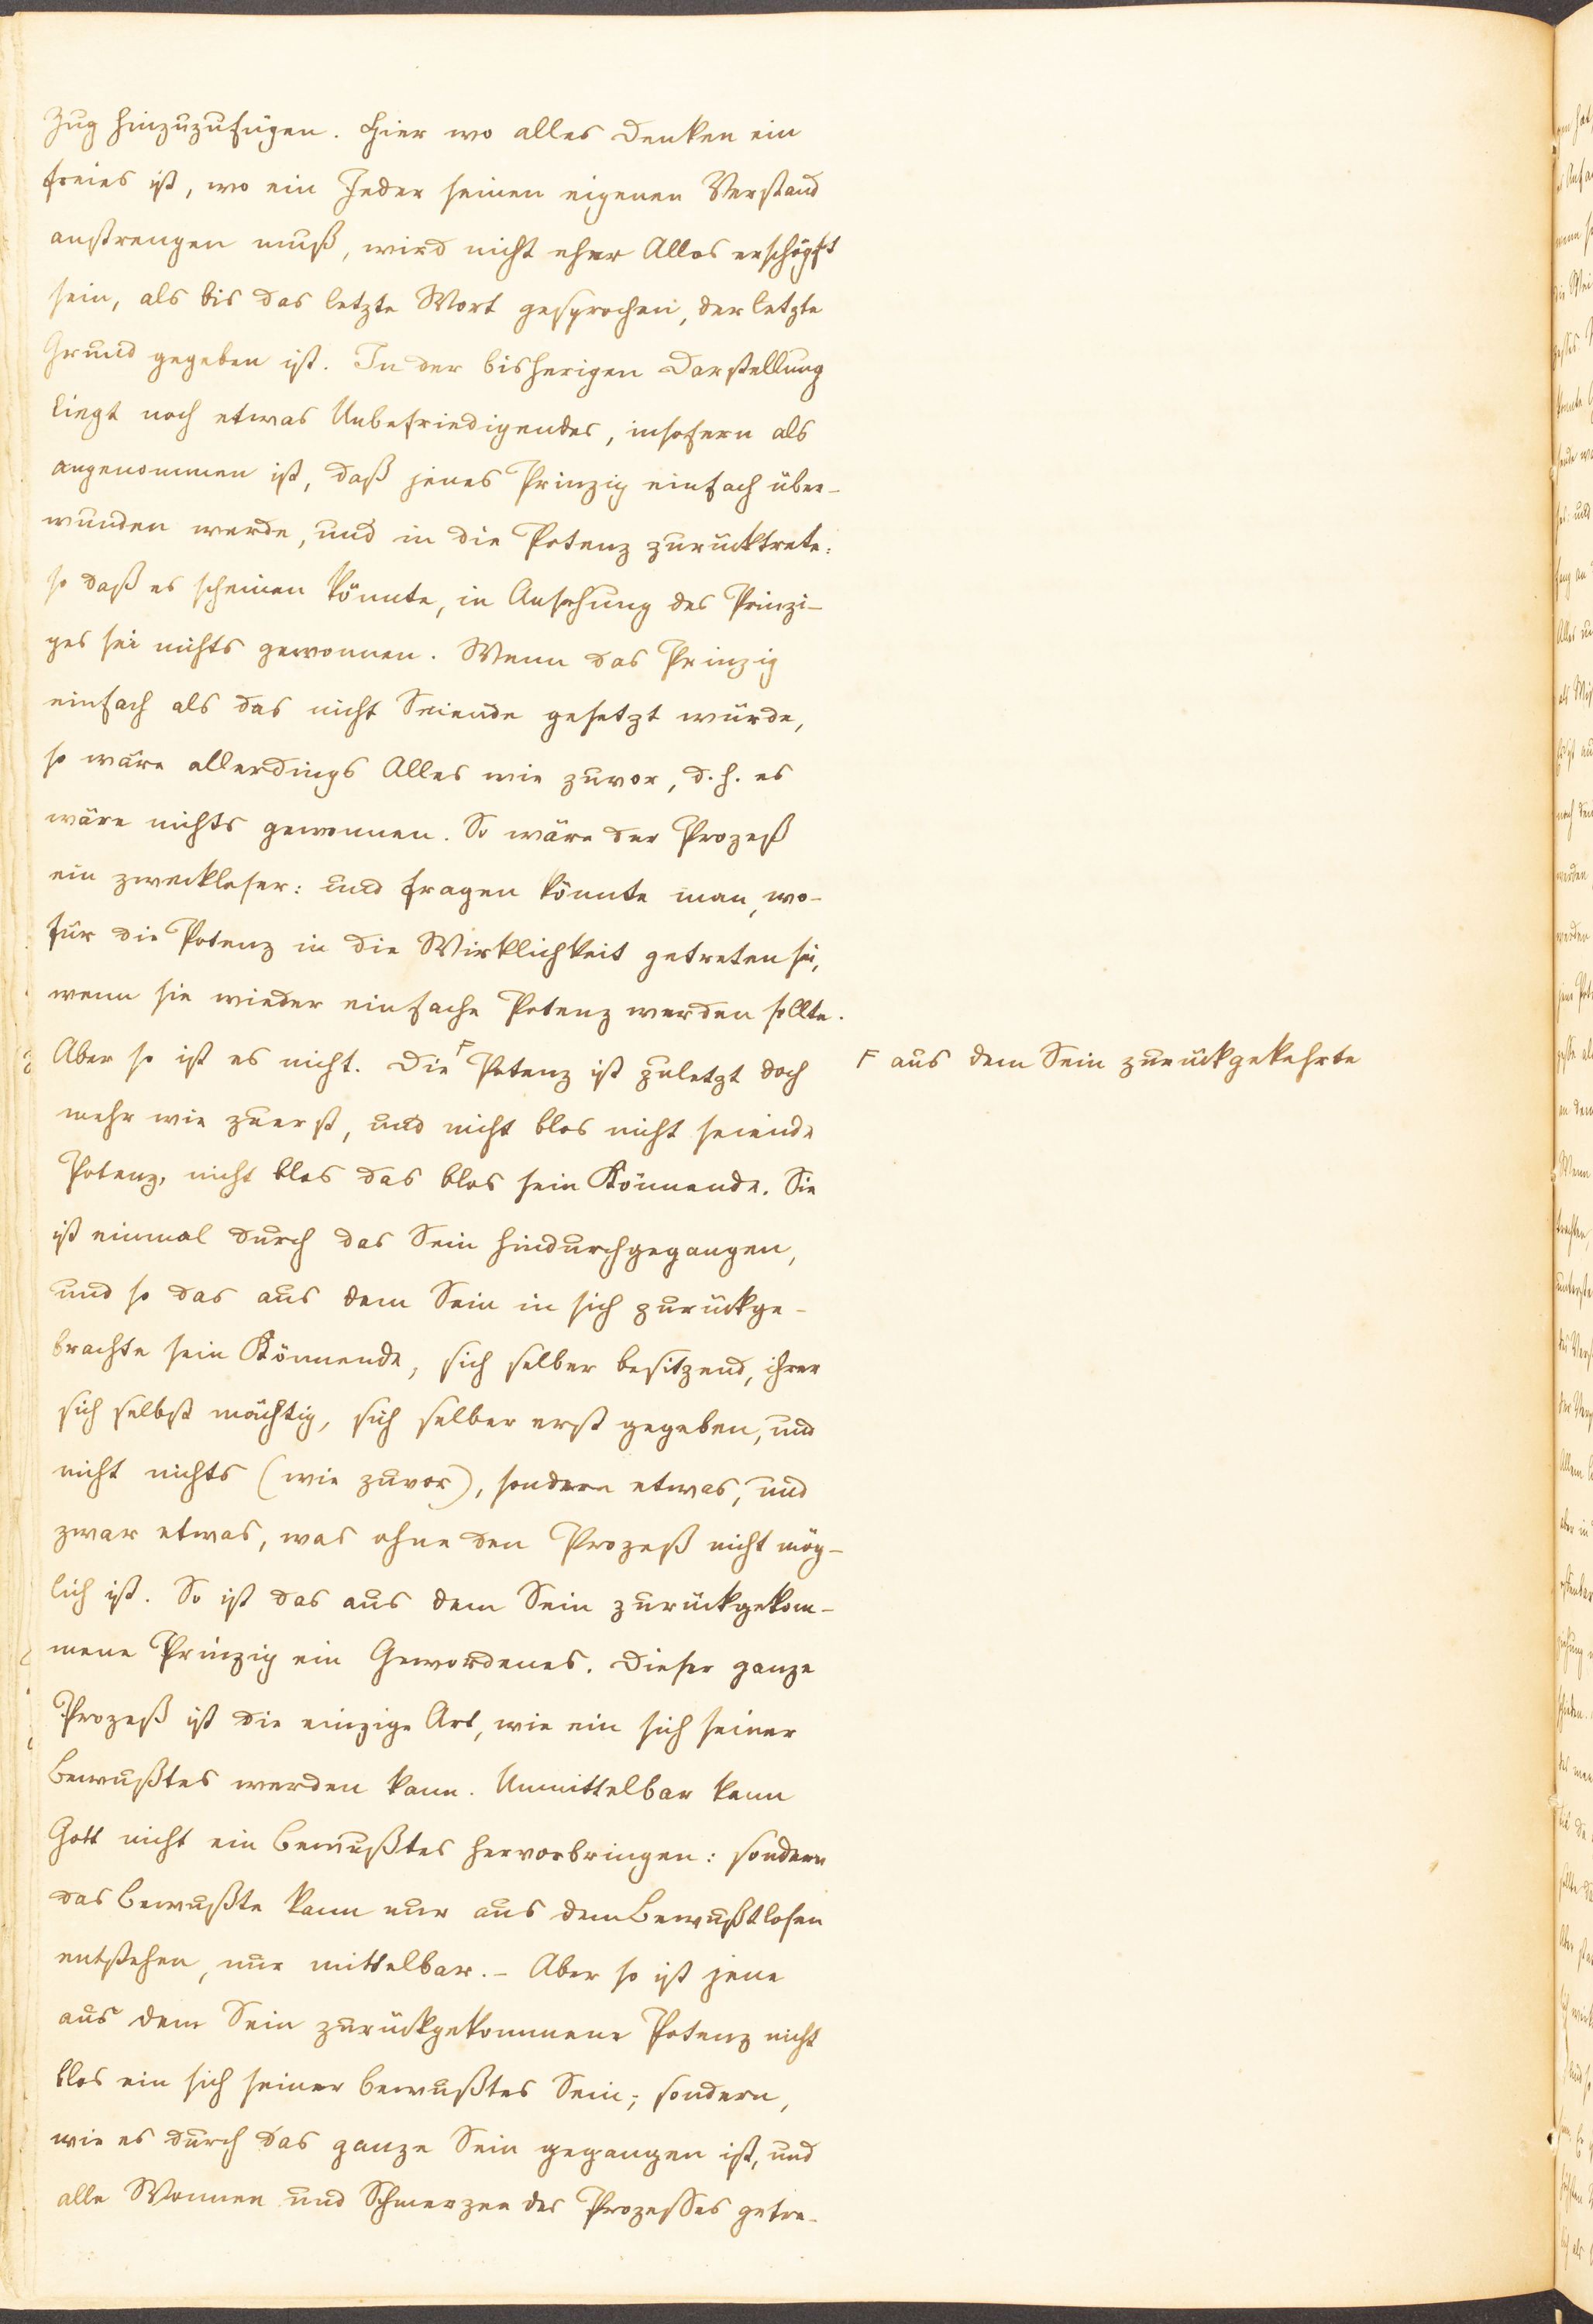 Zug hinzuzufügen. Hier wo alles Denken ein
freies ist, wo ein Jeder seinen eigenen Verstand
anstrengen muß, wird nicht eher Alles erschöpft
sein, als bis das letzte Wort gesprochen, der letzte
Grund gegeben ist. In der bisherigen Darstellung
liegt noch etwas Unbefriedigendes, insofern als
angenommen ist, daß jenes Prinzip einfach über-
wunden werde, und in die Potenz zurücktrete:
so daß es scheinen könnte, in Ansehung des Prinzi-
pes sei nichts gewonnen. Wenn das Prinzip
einfach als das nicht Seiende gesetzt würde,
so wäre allerdings Alles wie zuvor, d. h. es
wäre nichts gewonnen. So wäre der Prozeß
ein zweckloser: und fragen könnte man, wo-
für die Potenz in die Wirklichkeit getreten sei,
wenn sie wieder einfache Potenz werden sollte.
Aber so ist es nicht. Die F Potenz ist zuletzt doch
F aus dem Sein zurückgekehrte
mehr wie zuerst, und nicht blos nicht seiende
Potenz, nicht blos das blos sein Könnende. Sie
ist einmal durch das Sein hindurchgegangen,
und so das aus dem Sein in sich zurückge-
brachte sein Könnende, sich selber besitzend, ihrer
sich selbst mächtig, sich selber erst gegeben, und
nicht nichts (wie zuvor), sondern etwas, und
zwar etwas, was ohne den Prozeß nicht mög-
lich ist. So ist das aus dem Sein zurückgekom-
mene Prinzip ein Gewordenes. Dieser ganze
Prozeß ist die einzige Art, wie ein sich seiner
Bewußtes werden kann. Unmittelbar kann
Gott nicht ein Bewußtes hervorbringen: sondern
das Bewußte kann nur aus dem Bewußtlosen
entstehen, nur mittelbar. - Aber so ist jene
aus dem Sein zurückgekommene Potenz nicht
blos ein sich seiner bewußtes Sein; sondern,
wie es durch das ganze Sein gegangen ist, und
alle Wonnen und Schmerzen des Prozesses getre-